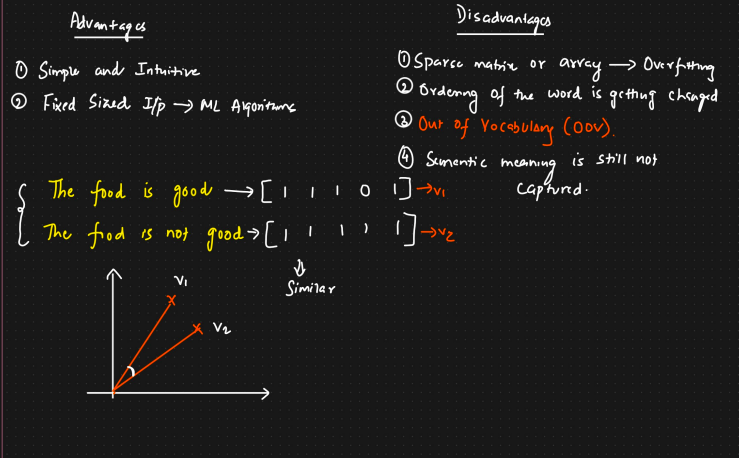 Advantages
① Simple and Intuitive
② Fixed Sized I/p → ML Algorithms
Disadvantages
① Sparse matrix or array → Overfitting
② Ordering of the word is getting changed
③ Out of Vocabulary (OOV).
④ Semantic meaning is still not
captured.
The food is good → [ 1 1 1 0 1 ] → v1
The food is not good → [ 1 1 1 1 1 ] → v2
Similar
V1
V2